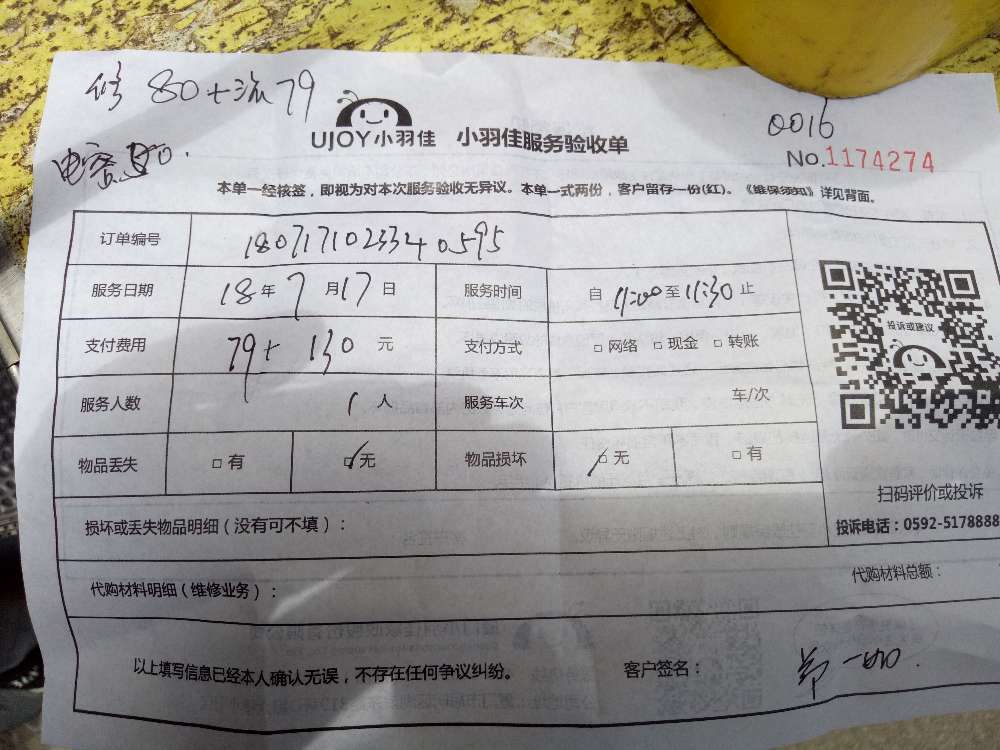 修 80+流79
0016
UJOY小羽佳 小羽佳服务验收单
No.1174274
50.
本单一经核签，即视为对本次服务验收无异议。本单一式两份，客户留存一份(红)。《维保须知》详见背面。
订单编号 180717102334 0595
服务日期 18年7月17日 服务时间 自11:00至11:30止
支付费用 79+ 130元 支付方式 □网络 □现金 □转账
投诉或建议
服务人数 1人 服务车次 车/次
物品丢失 □有 ☑无 物品损坏 ☑无 □有
扫码评价或投诉
损坏或丢失物品明细（没有可不填）：
投诉电话：0592-5178888
代购材料明细（维修业务）：
代购材料总额：
以上填写信息已经本人确认无误，不存在任何争议纠纷。 客户签名：